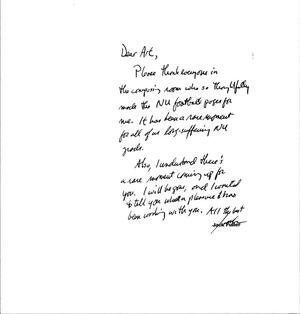 Dear Art,
Please thank everyone in
the composing room who so thoughtfully
made the NU football pages for
me. It has been a rare moment
for all of us long-suffering NU
grads.
Also, I understand there's
a rare moment coming up for
you. I will be gone, and I wanted
to tell you what a pleasure it has
been working with you. All the best